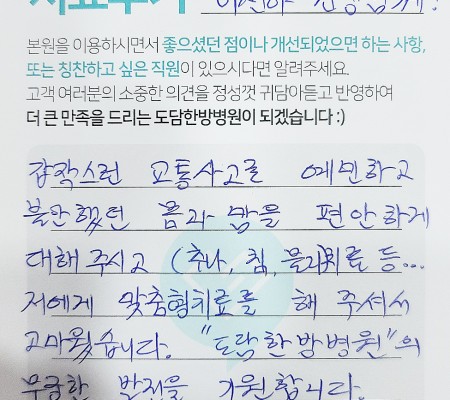 치료후기
본원을 이용하시면서 좋으셨던 점이나 개선되었으면 하는 사항,
또는 칭찬하고 싶은 직원이 있으시다면 알려주세요.
고객 여러분의 소중한 의견을 정성껏 귀담아듣고 반영하여
더 큰 만족을 드리는 도담한방병원이 되겠습니다 :)
갑작스런 교통사고로 예민하고
불안했던 몸과 맘을 편안하게
대해 주시고 (추나, 침, 물리치료 등...
저에게 맞춤형치료를 해 주셔서
고마웠습니다. "도담한방병원"의
무궁한 발전을 기원합니다.